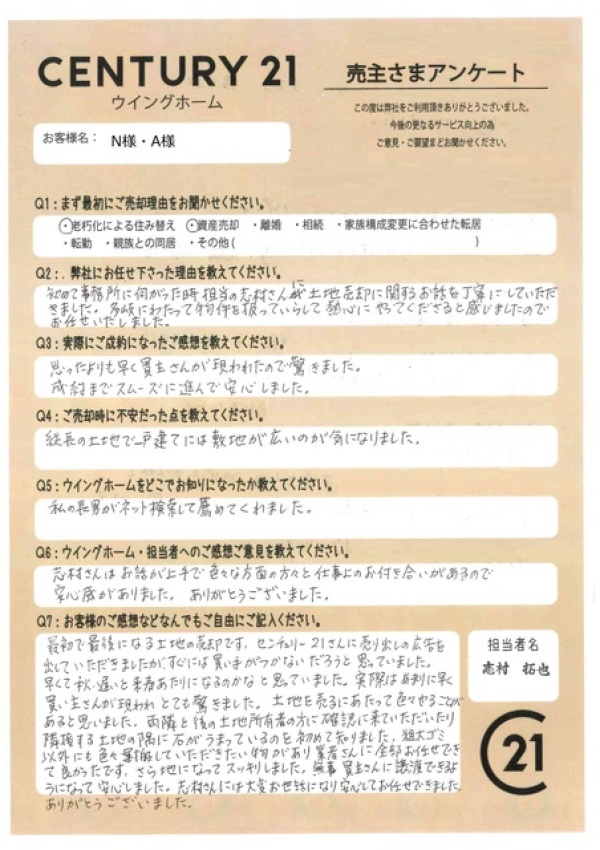 CENTURY 21
ウイングホーム
売主さまアンケート
この度は弊社をご利用頂きありがとうございました。
今後の更なるサービス向上の為
ご意見・ご要望までお聞かせください。
お客様名： N様・A様
Q1：まず最初にご売却理由をお聞かせください。
・老朽化による住み替え ・資産売却 ・離婚 ・相続 ・家族構成変更に合わせた転居
・転勤 ・親族との同居 ・その他(　)
Q2：. 弊社にお任せ下さった理由を教えてください。
初めて事務所に伺かった時担当の志村さんが土地売却に関するお話を丁寧にしていただ
きました。多岐にわたって物件を扱っていらして熱心にやってくださると感じましたので
お任せいたしました。
Q3：実際にご成約になったご感想を教えてください。
思ったよりも早く買主さんが現われたので驚きました。
成約までスムーズに進んで安心しました。
Q4：ご売却時に不安だった点を教えてください。
縦長の土地で一戸建てには敷地が広いのが気になりました。
Q5：ウイングホームをどこでお知りになったか教えてください。
私の長男がネット検索して薦めてくれました。
Q6：ウイングホーム・担当者へのご感想ご意見を教えてください。
志村さんはお話が上手で色々な方面の方々と仕事上のお付き合いがあるので
安心感がありました。ありがとうございました。
Q7：お客様のご感想などなんでもご自由にご記入ください。
最初で最後になる土地の売却です。センチュリー21さんに売り出しの広告を
出していただきましたが、すぐには買い手がつかないだろうと思っていました。
早くて秋、遅いと来春あたりになるのかなと思っていました。実際は 早く
買い主さんが現われとても驚きました。土地を売るにあたって色々やることが
あると思いました。両隣と後の土地所有者の方に確認に来ていただいたり
隣接する土地の隅に石がうまっているのを初めて知りました。粗大ゴミ
以外にも色々 していただきたい物があり業者さんに全部お任せでき
て良かったです。さら地になってスッキリしました。無事買主さんに譲渡できるよ
うになって安心しました。志村さんには大変お世話になり安心してお任せできました。
ありがとうございました。
担当者名
志村 拓也
C21